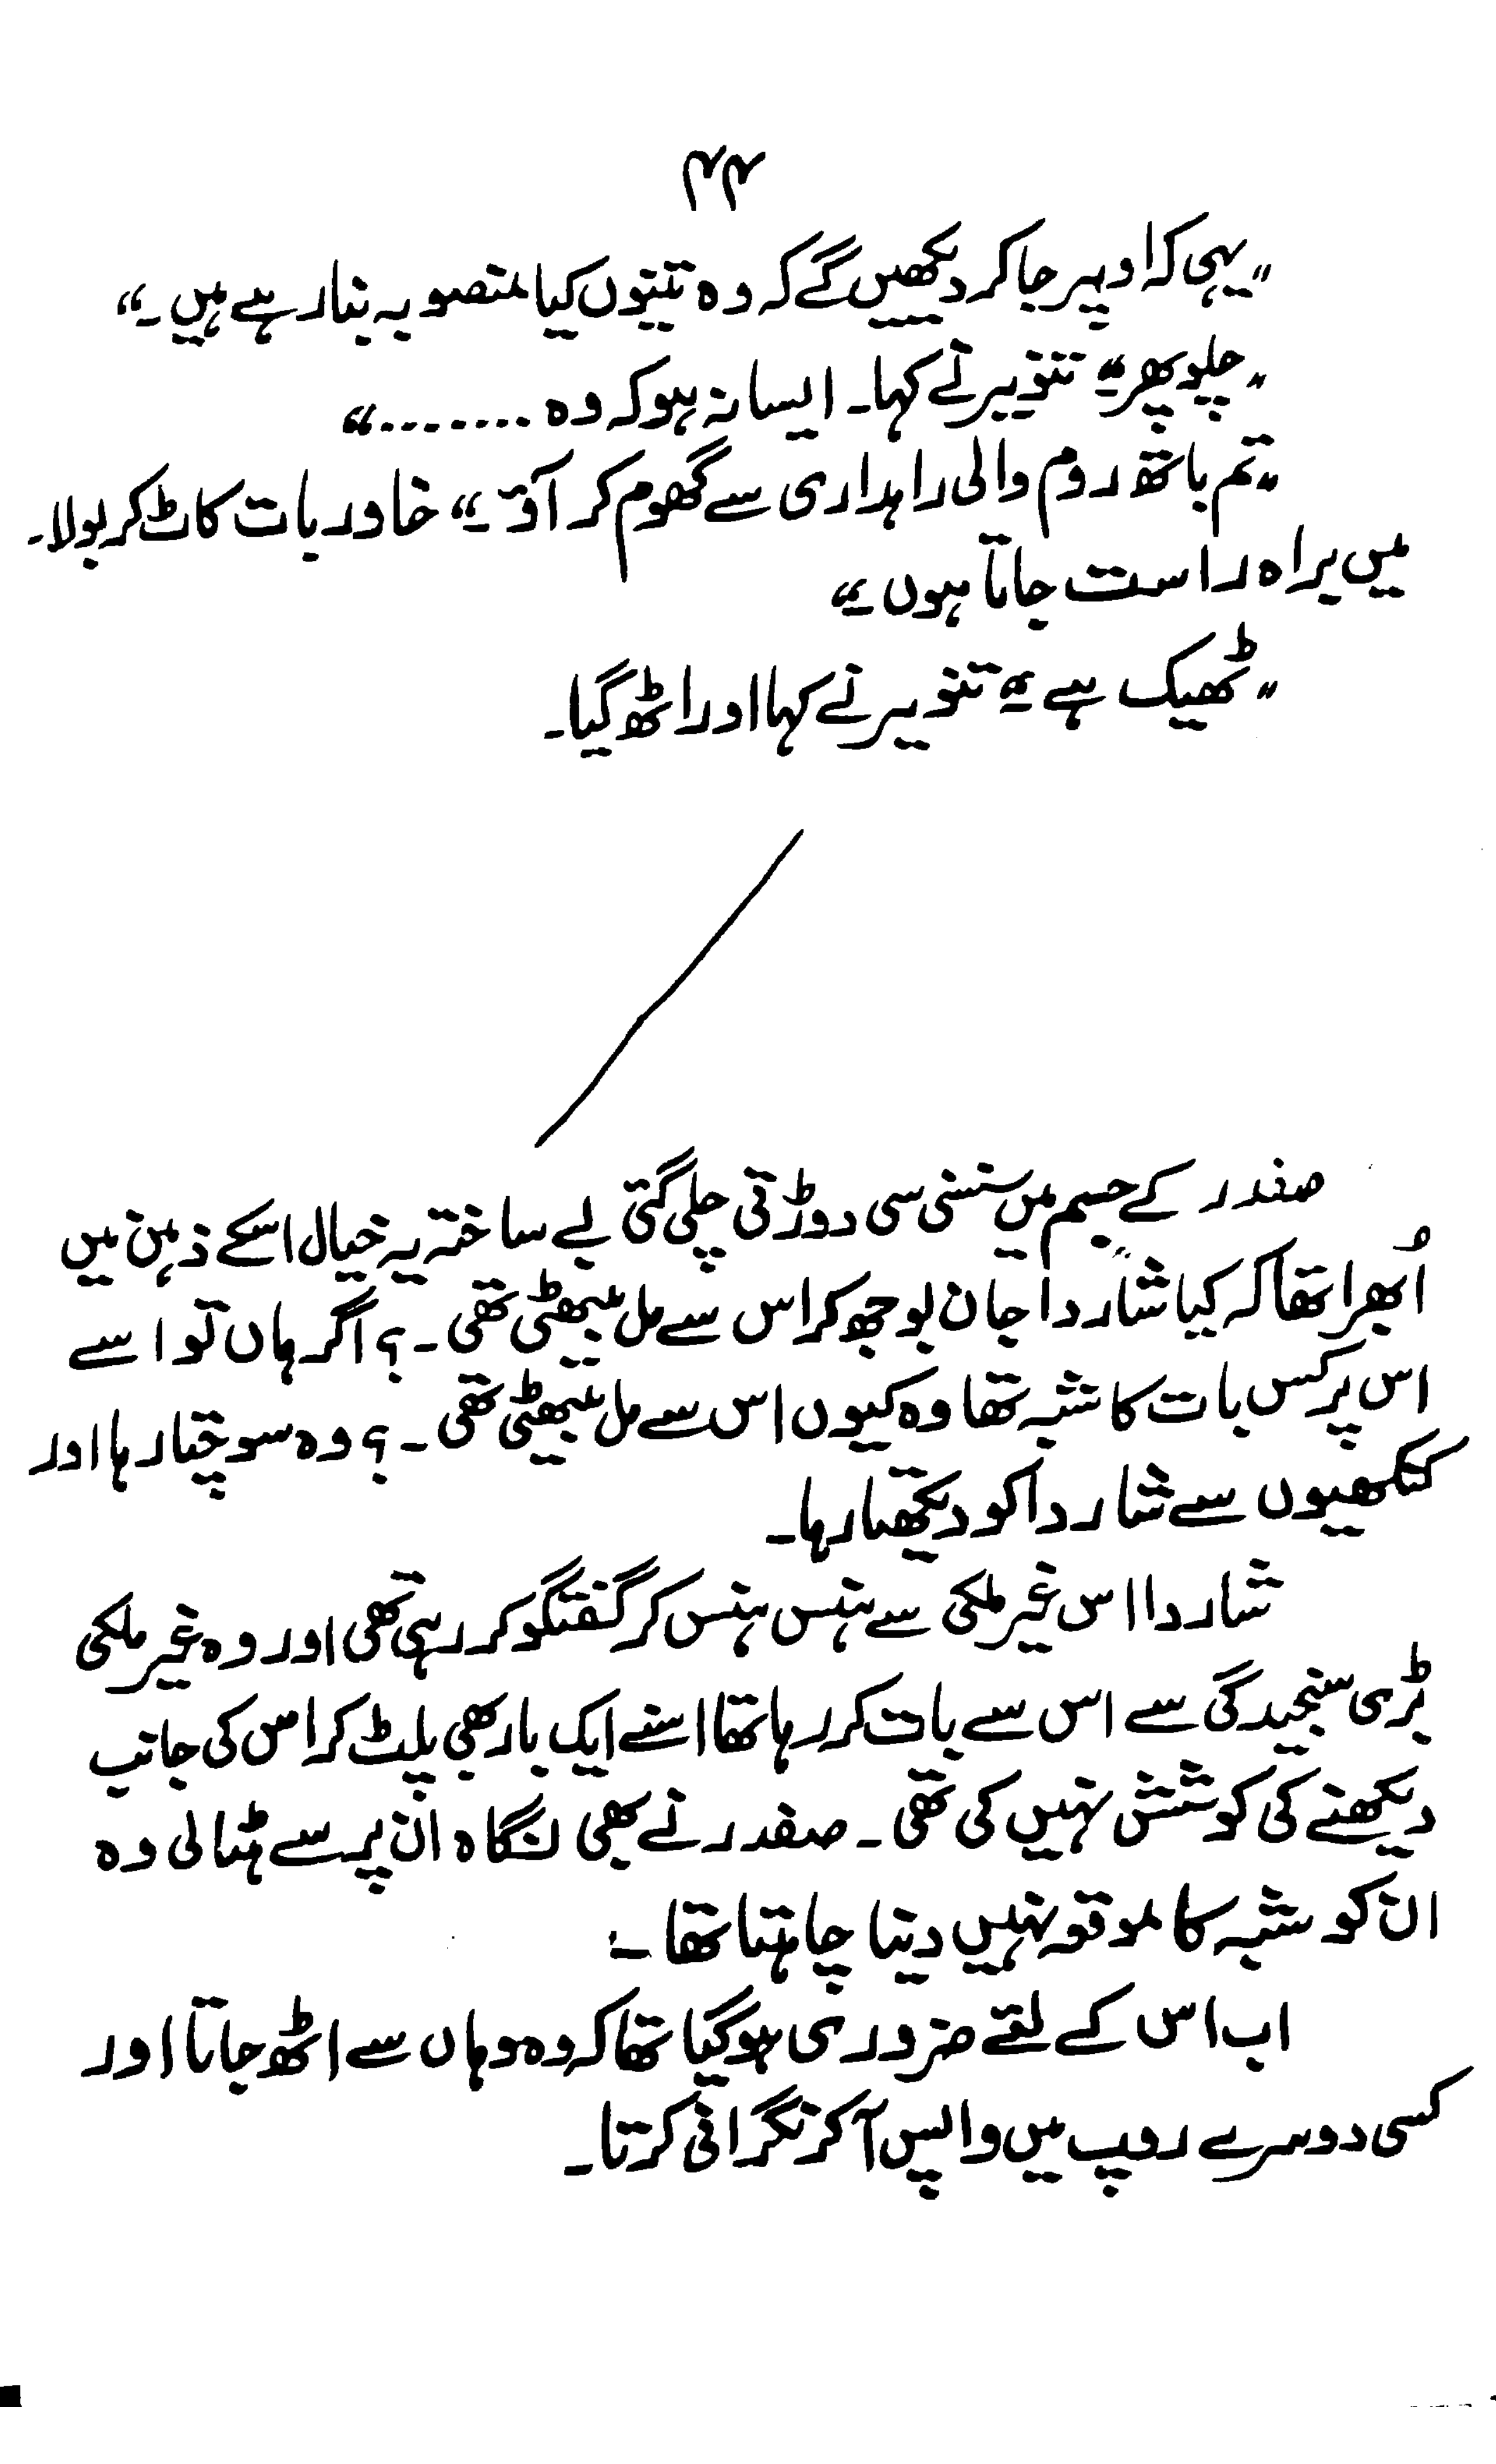 ۴۴
"یہی کہ اوپر جا کر دیکھیں گے کہ وہ تینوں کیا منصوبہ بنا رہے ہیں۔"
"چلو پھر۔" تنویر نے کہا۔ ایسا نہ ہو کہ وہ ........"
"تم باتھ روم والی راہداری سے گھوم کر آؤ۔" خاور بات کاٹ کر بولا۔
میں براہ راست جاتا ہوں۔"
"ٹھیک ہے۔" تنویر نے کہا اور اٹھ گیا۔
صفدر کے جسم میں سنسنی سی دوڑتی چلی گئی بے ساختہ یہ خیال اسکے ذہن میں
اُبھرا تھا کہ کیا شاردا جان بوجھ کر اس سے مل بیٹھی تھی۔؟ اگر ہاں تو اسے
اس پر کس بات کا شبہ تھا وہ کیوں اس سے مل بیٹھی تھی۔؟ وہ سوچتا رہا اور
کنکھیوں سے شاردا کو دیکھتا رہا۔
شاردا اس غیر ملکی سے ہنس ہنس کر گفتگو کر رہی تھی اور وہ غیر ملکی
بڑی سنجیدگی سے اس سے بات کر رہا تھا اسنے ایک بار بھی پلٹ کر اس کی جانب
دیکھنے کی کوشش نہیں کی تھی۔ صفدر نے بھی نگاہ ان پر سے ہٹا لی وہ
ان کو شبہ کا موقعہ نہیں دینا چاہتا تھا۔
اب اس کے لئے ضروری ہو گیا تھا کہ وہ وہاں سے اٹھ جاتا اور
کسی دوسرے روپ میں واپس آ کر نگرانی کرتا۔